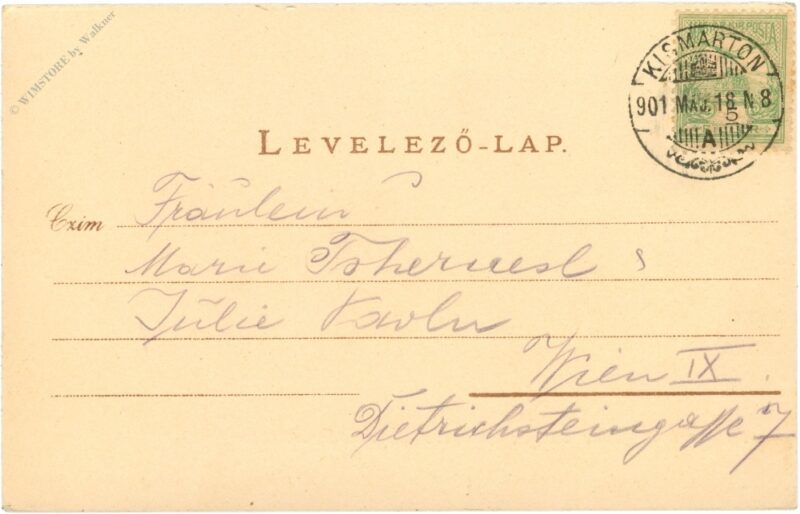 © WIMSTORE by Walkner
POSTA
KISMARTON
901 MAJ. 18 N 8
5
A
LEVELEZŐ-LAP.
Czim Fräulein
Marie
Julie
Wien IX.
Dietrichsteingasse 7